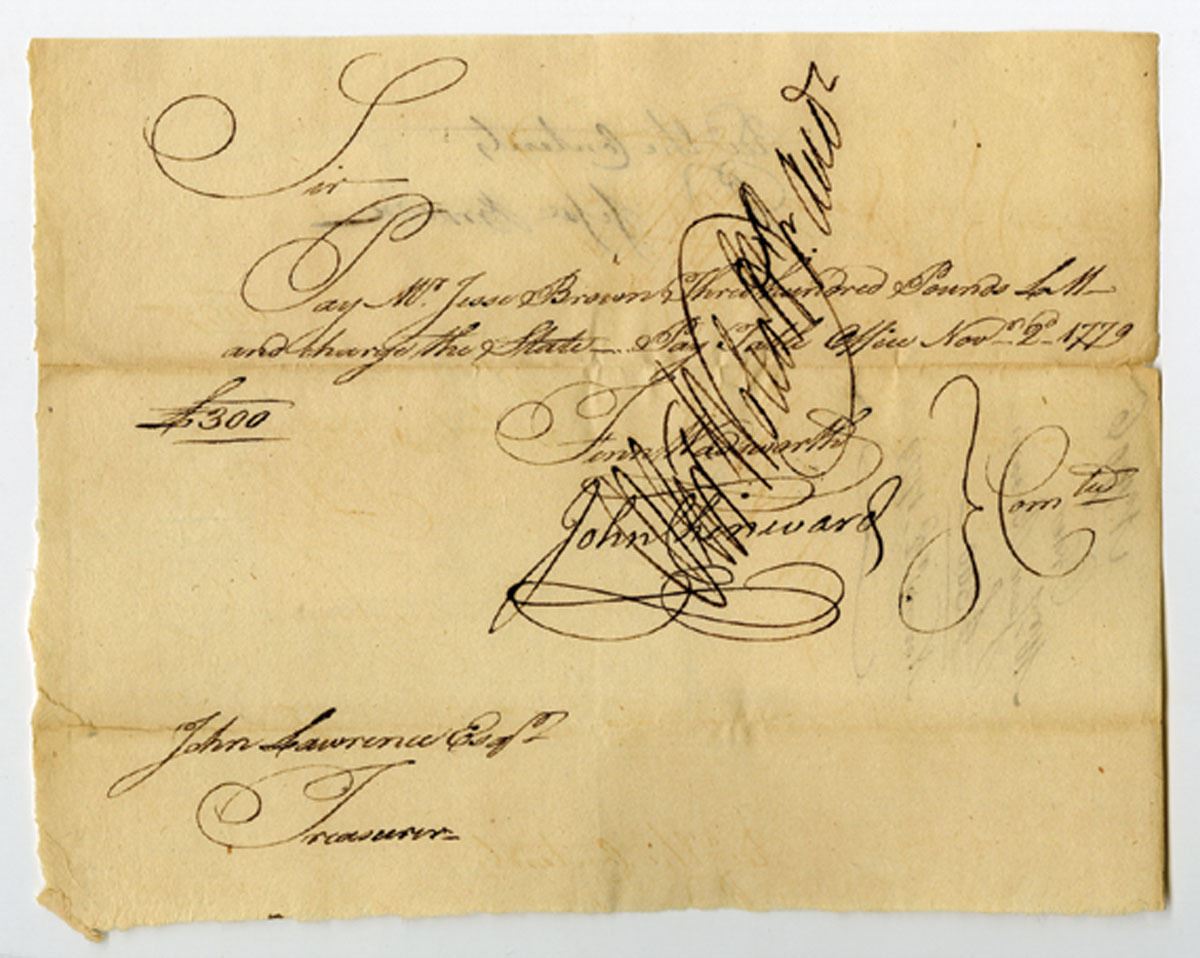 Sir
Pay Mr. Jesse Brown Three hundred Pounds L M
and charge the State Pay Table Office Novr. 2d 1779
£300
Fenn Wadsworth
John Chenward
Comtee
John Lawrence Esqr
Treasurer